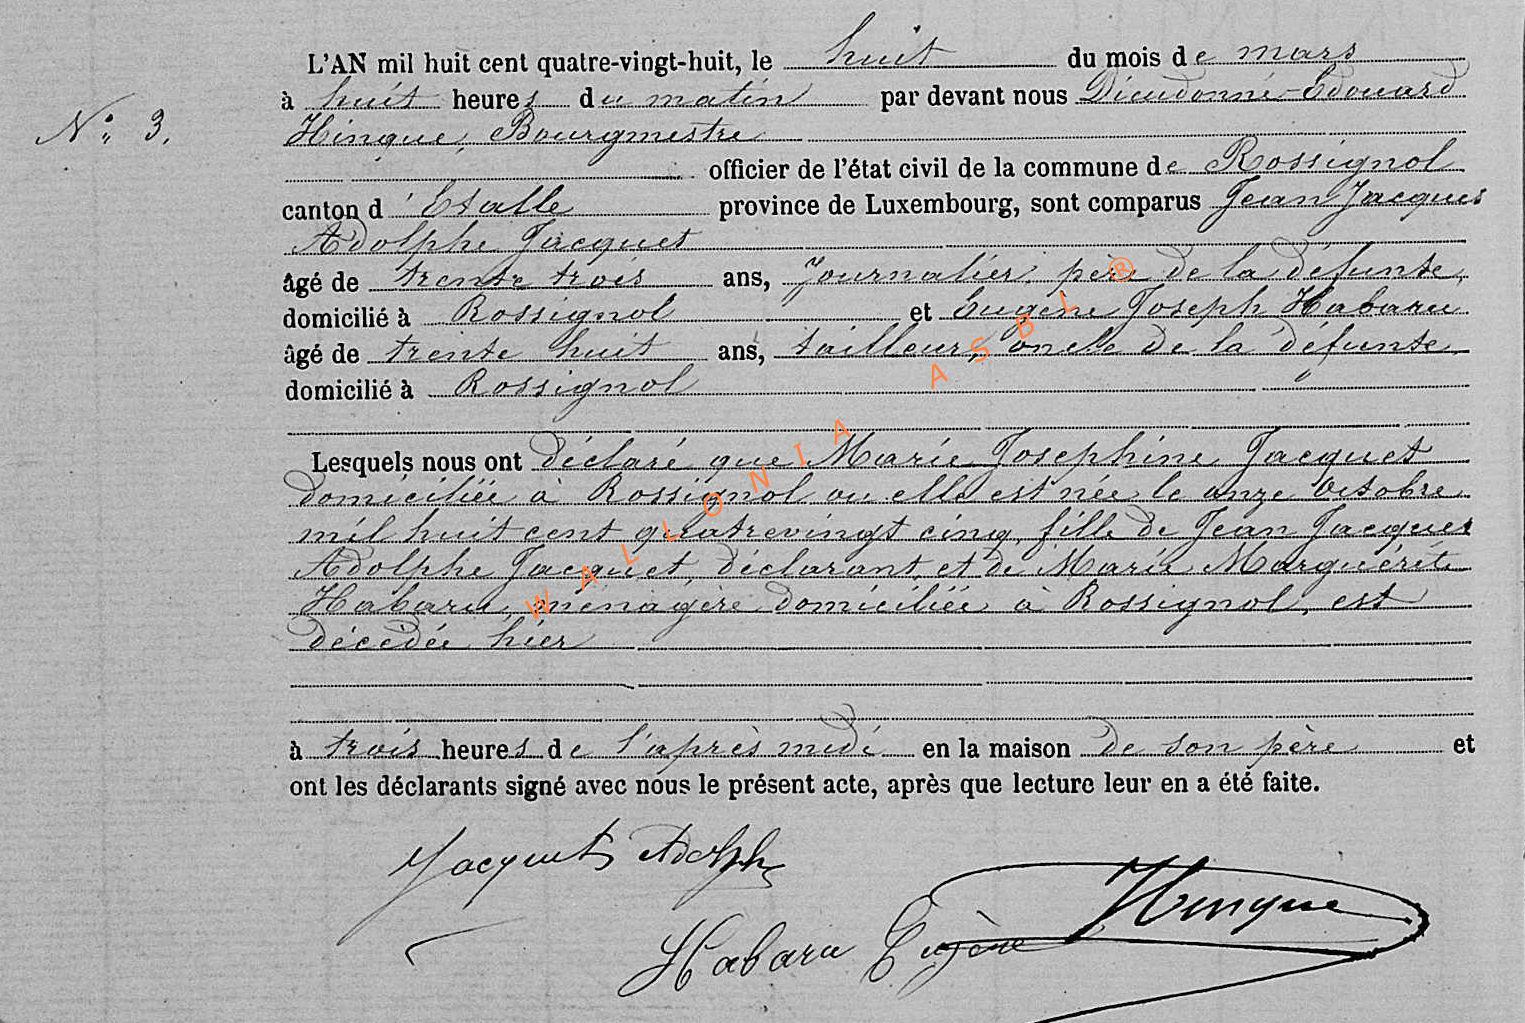 L'AN mil huit cent quatre-vingt-huit, le huit du mois de mars
à huit heures du matin par devant nous Dieudonné-Edouard
N° 3. Hinque, Bourgmestre
officier de l'état civil de la commune de Rossignol
canton d'Etalle province de Luxembourg, sont comparus Jean Jacques
Adolphe Jacquet
âgé de trente trois ans, journalier, père de la défunte,
domicilié à Rossignol et Eugène Joseph Habaru
âgé de trente huit ans, tailleur, oncle de la défunte
domicilié à Rossignol
Lesquels nous ont déclaré que Marie Josephine Jacquet
domiciliée à Rossignol ou elle est née le onze Octobre
mil huit cent quatrevingt cinq, fille de Jean Jacques
Adolphe Jacquet, déclarant, et de Marie Marguérite
Habaru, ménagère domiciliée à Rossignol, est
décédée hier
à trois heures de l'après midi en la maison de son père et
ont les déclarants signé avec nous le présent acte, après que lecture leur en a été faite.
Jacquet Adolphe
Hinque
Habaru Eugène
WALLONIA ASBL ®